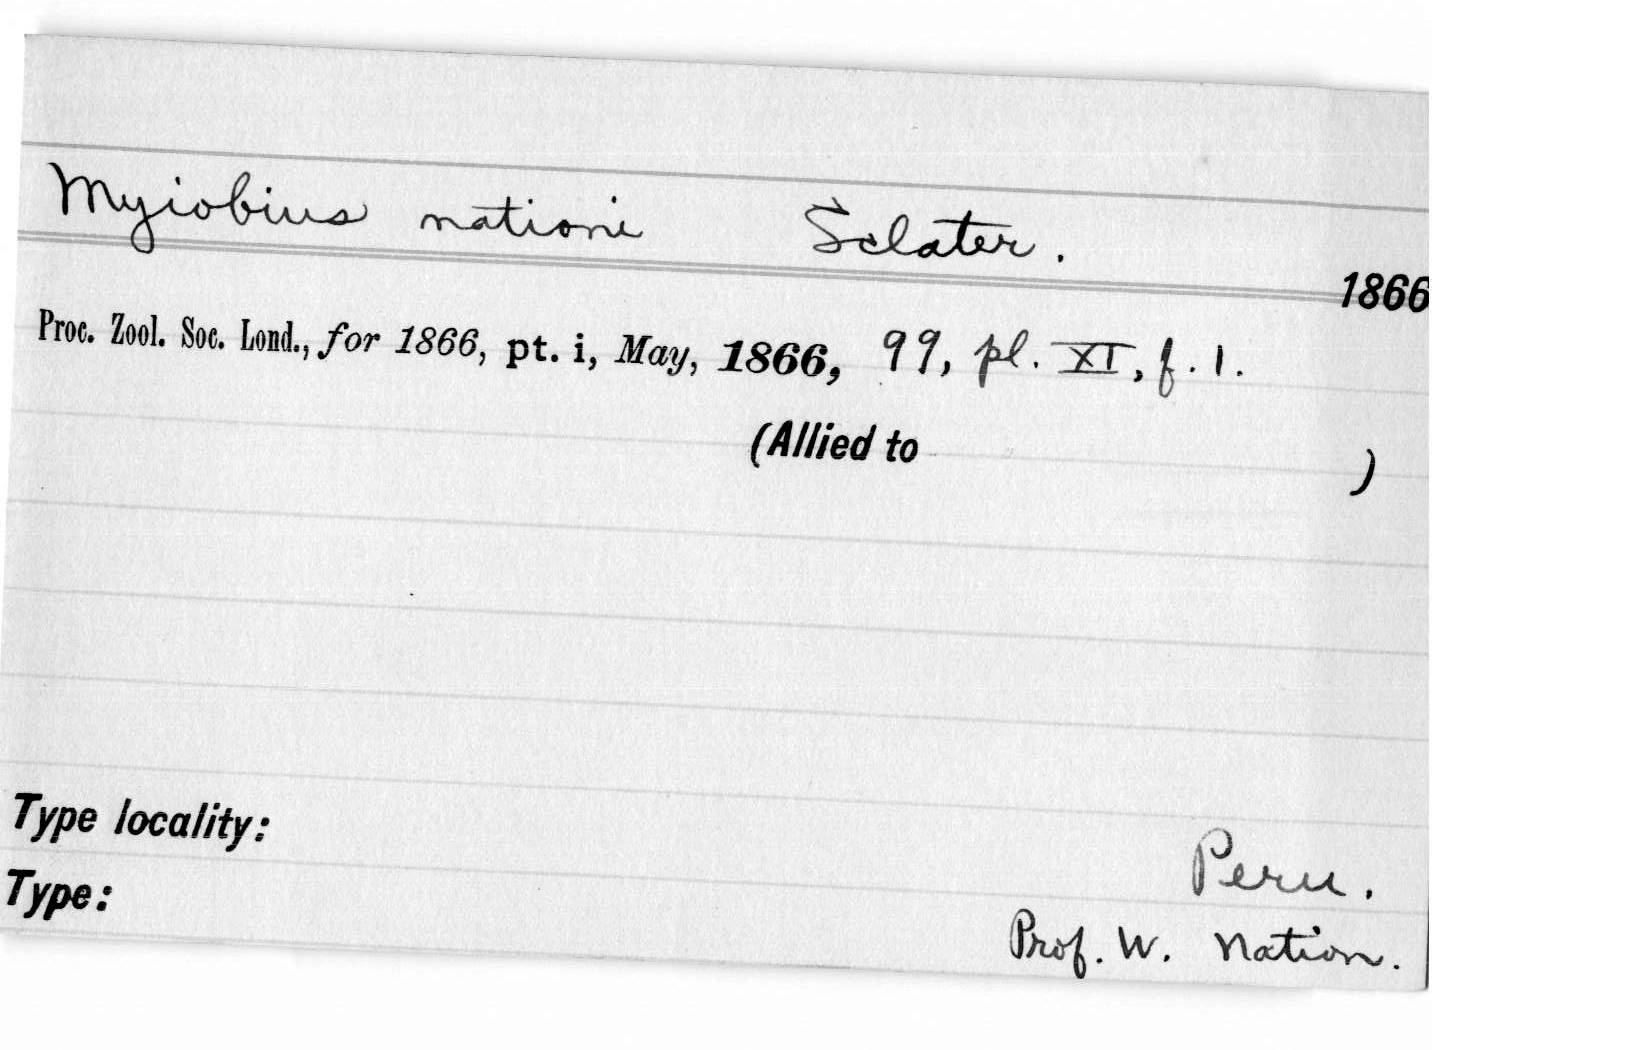 Myiobius nationi Sclater.
1866
Proc. Zool. Soc. Lond., for 1866, pt. i, May, 1866, 99, pl. XI, f. 1.
(Allied to )
Type locality: Peru.
Type: Prof. W. Nation.